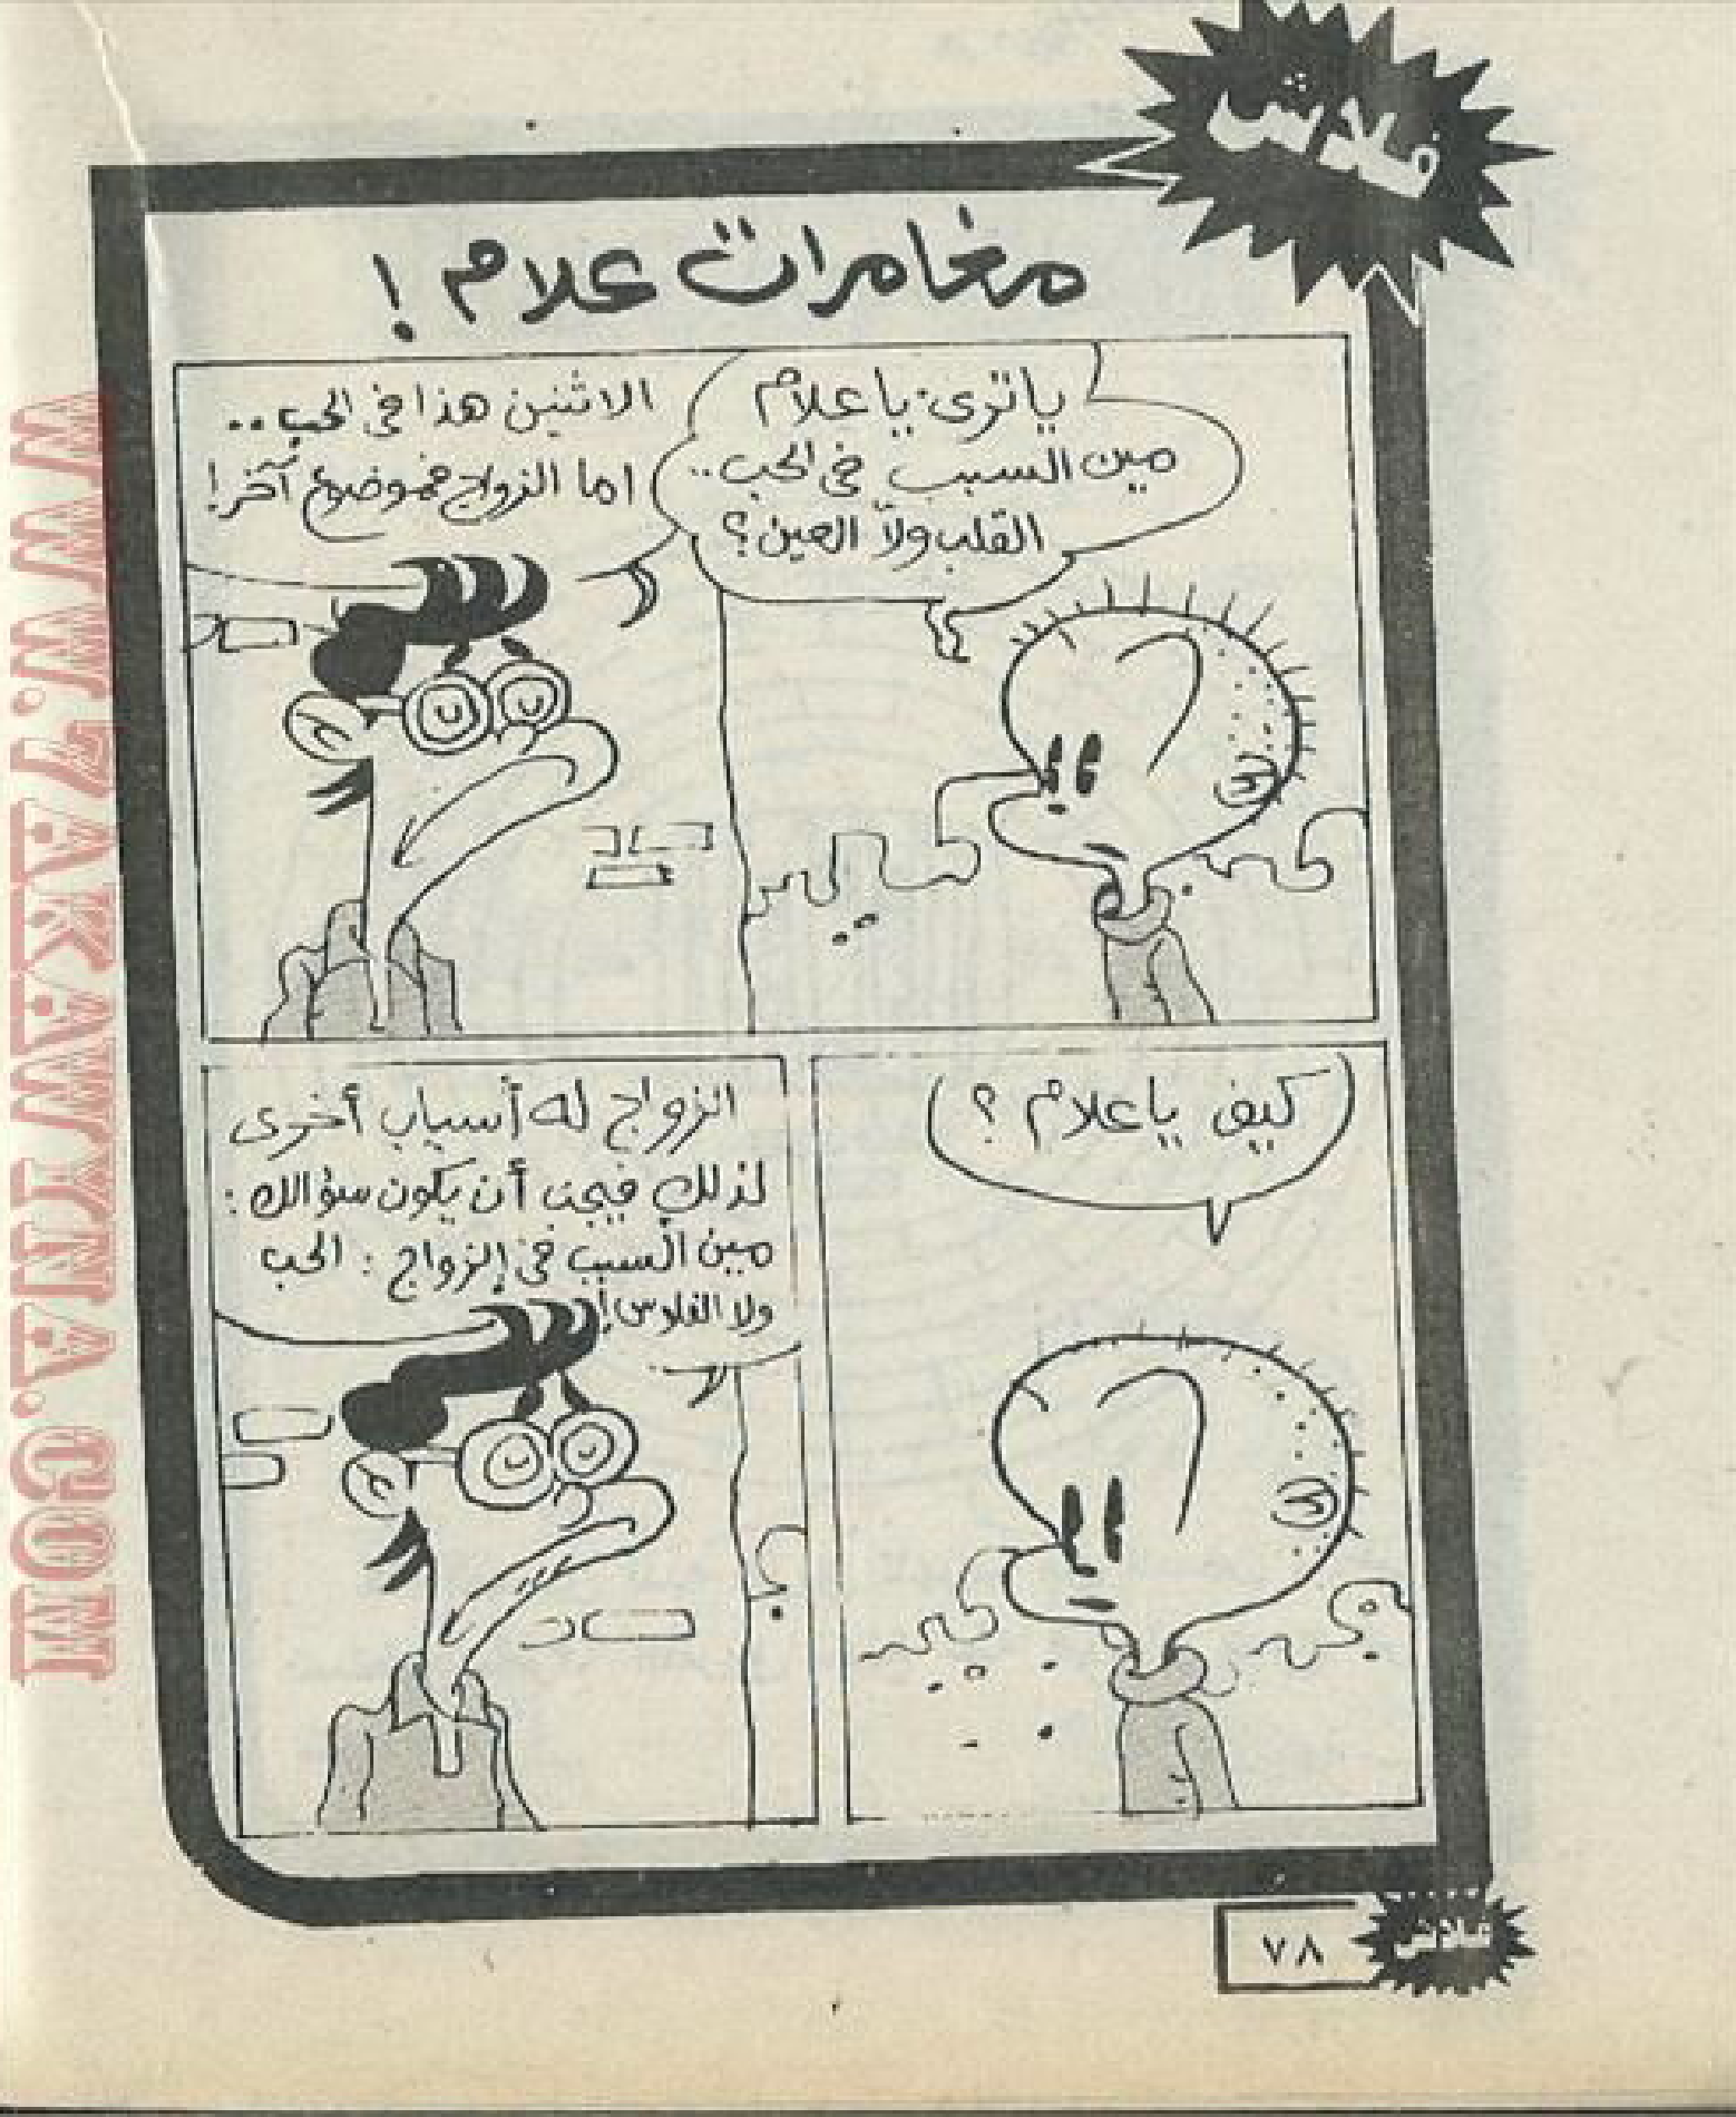 فلاش
مغامرات علام !
ياترى ياعلام
مين السبب فى الحب..
القلب ولا العين؟
الاثنين هذا فى الحب..
اما الزواج فموضوع آخر!
كيف ياعلام ؟
الزواج له أسباب أخرى
لذلك فيجب أن يكون سؤالك :
مين السبب فى الزواج : الحب
ولا الفلوس!
٧٨
فلاش
WWW.7AKAWTNA.COM